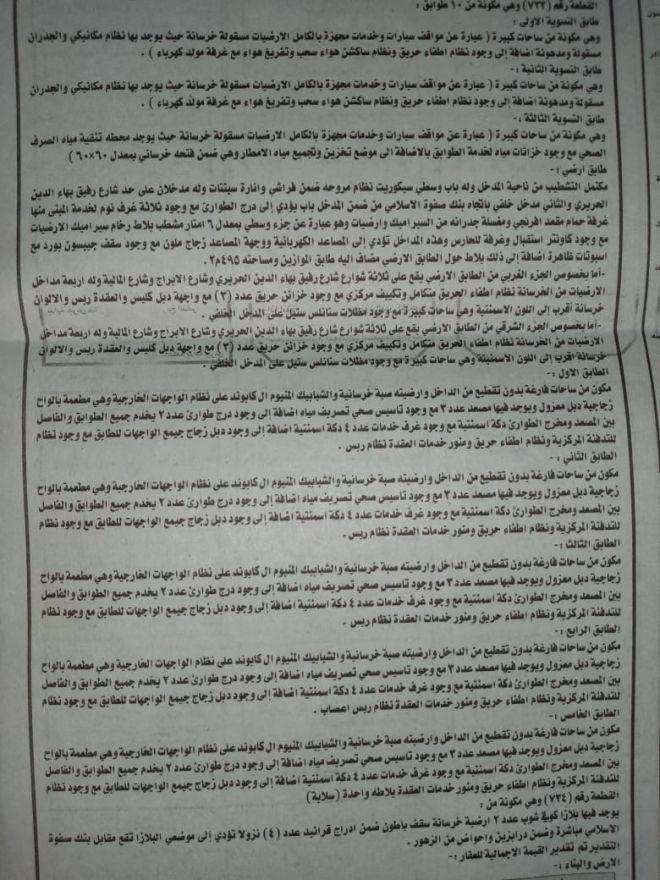 القطعة رقم (٧٣٣) وهي مكونة من ١٠ طوابق :
طابق التسوية الاولى :
وهي مكونة من ساحات كبيرة ( عبارة عن مواقف سيارات وخدمات مجهزة بالكامل الارضيات مسقولة خرسانة حيث يوجد بها نظام مكانيكي والجدران
مسقولة ومدهونة اضافة إلى وجود نظام اطفاء حريق ونظام ساكشن هواء سحب وتفريغ هواء مع غرفة مولد كهرباء ) .
طابق التسوية الثانية :-
وهي مكونة من ساحات كبيرة ( عبارة عن مواقف سيارات وخدمات مجهزة بالكامل الارضيات مسقولة خرسانة حيث يوجد بها نظام مكانيكي والجدران
مسقولة ومدهونة اضافة إلى وجود نظام اطفاء حريق ونظام ساكشن هواء سحب وتفريغ هواء مع غرفة مولد كهرباء ) .
طابق التسوية الثالثة :-
وهي مكونة من ساحات كبيرة ( عبارة عن مواقف سيارات وخدمات مجهزة بالكامل الارضيات مسقولة خرسانة حيث يوجد محطه تنقية مياه الصرف
الصحي مع وجود خزانات مياه لخدمة الطوابق بالاضافة الى موضع تخزين وتجميع مياه الامطار وهي ضمن فتحه خرساني بمعدل ٦٠×٦٠ )
طابق ارضي :-
مكتمل التشطيب من ناحية المدخل وله باب وسطي سيكوريت نظام مروحه ضمن فراشي وانارة سبتات وله مدخلان على حد شارع رفيق بهاء الدين
الحريري والثاني مدخل خلفي باتجاه بنك صفوة الاسلامي من ضمن المدخل باب يؤدي إلى درج الطوارئ مع وجود ثلاثة غرف نوم لخدمة المبنى منها
غرفة حمام مقعد افرنجي ومغسلة جدرانه من السيراميك وارضيات وهو عبارة عن جزء وسطي بمعدل ٦ امتار مشطب بلاط رخام سيراميك الارضيات
مع وجود كاونتر استقبال وغرفة للحارس وهذه المداخل تؤدي إلى المصاعد الكهربائية ووجهة المصاعد زجاج ملون مع وجود سقف جيبسون بورد مع
اسبوتات ظاهرة اضافة إلى ذلك بلاط حول الطابق الارضي مضاف اليه طابق الموازين ومساحته ٤٩٥م٢ .
-أما بخصوص الجزء الغربي من الطابق الارضي يقع على ثلاثة شوارع شارع رفيق بهاء الدين الحريري وشارع الابراج وشارع المالية وله اربعة مداخل
الارضيات من الخرسانة نظام اطفاء الحريق متكامل وتكييف مركزي مع وجود خزائن حريق عدد (٣) مع واجهة دبل كليس والعقدة ريس والالوان
خرسانة أقرب إلى اللون الاسمنتية وهي ساحات كبيرة مع وجود مظلات ستانلس ستيل على المدخل الخلفي .
-أما بخصوص الجزء الشرقي من الطابق الارضي يقع على ثلاثة شوارع شارع رفيق بهاء الدين الحريري وشارع الابراج وشارع المالية وله اربعة مداخل
الارضيات من الخرسانة نظام اطفاء الحريق متكامل وتكييف مركزي مع وجود خزائن حريق عدد (٣) مع واجهة دبل كليس والعقدة ريس والالوان
خرسانة أقرب إلى اللون الاسمنتية وهي ساحات كبيرة مع وجود مظلات ستانلس ستيل على المدخل الخلفي .
الطابق الاول :-
مكون من ساحات فارغة بدون تقطيع من الداخل وارضيته صبة خرسانية والشبابيك المنيوم ال كابوند على نظام الواجهات الخارجية وهي مطعمة بالواح
زجاجية دبل معزول ويوجد فيها مصعد عدد ٣ مع وجود تاسيس صحي تصريف مياه اضافة إلى وجود درج طوارئ عدد ٢ يخدم جميع الطوابق والفاصل
بين المصعد ومخرج الطوارئ دكة اسمنتية مع وجود غرف خدمات عدد ٤ دكة اسمنتية اضافة إلى وجود دبل زجاج جيمع الواجهات للطابق مع وجود نظام
للتدفئة المركزية ونظام اطفاء حريق ومنور خدمات العقدة نظام ريس .
الطابق الثاني :-
مكون من ساحات فارغة بدون تقطيع من الداخل وارضيته صبة خرسانية والشبابيك المنيوم ال كابوند على نظام الواجهات الخارجية وهي مطعمة بالواح
زجاجية دبل معزول ويوجد فيها مصعد عدد ٣ مع وجود تاسيس صحي تصريف مياه اضافة إلى وجود درج طوارئ عدد ٢ يخدم جميع الطوابق والفاصل
بين المصعد ومخرج الطوارئ دكة اسمنتية مع وجود غرف خدمات عدد ٤ دكة اسمنتية اضافة إلى وجود دبل زجاج جيمع الواجهات للطابق مع وجود نظام
للتدفئة المركزية ونظام اطفاء حريق ومنور خدمات العقدة نظام ريس .
الطابق الثالث :-
مكون من ساحات فارغة بدون تقطيع من الداخل وارضيته صبة خرسانية والشبابيك المنيوم ال كابوند على نظام الواجهات الخارجية وهي مطعمة بالواح
زجاجية دبل معزول ويوجد فيها مصعد عدد ٣ مع وجود تاسيس صحي تصريف مياه اضافة إلى وجود درج طوارئ عدد ٢ يخدم جميع الطوابق والفاصل
بين المصعد ومخرج الطوارئ دكة اسمنتية مع وجود غرف خدمات عدد ٤ دكة اسمنتية اضافة إلى وجود دبل زجاج جيمع الواجهات للطابق مع وجود نظام
للتدفئة المركزية ونظام اطفاء حريق ومنور خدمات العقدة نظام ريس .
الطابق الرابع :-
مكون من ساحات فارغة بدون تقطيع من الداخل وارضيته صبة خرسانية والشبابيك المنيوم ال كابوند على نظام الواجهات الخارجية وهي مطعمة بالواح
زجاجية دبل معزول ويوجد فيها مصعد عدد ٣ مع وجود تاسيس صحي تصريف مياه اضافة إلى وجود درج طوارئ عدد ٢ يخدم جميع الطوابق والفاصل
بين المصعد ومخرج الطوارئ دكة اسمنتية مع وجود غرف خدمات عدد ٤ دكة اسمنتية اضافة إلى وجود دبل زجاج جيمع الواجهات للطابق مع وجود نظام
للتدفئة المركزية ونظام اطفاء حريق ومنور خدمات العقدة نظام ريس اعصاب .
الطابق الخامس :-
مكون من ساحات فارغة بدون تقطيع من الداخل وارضيته صبة خرسانية والشبابيك المنيوم ال كابوند على نظام الواجهات الخارجية وهي مطعمة بالواح
زجاجية دبل معزول ويوجد فيها مصعد عدد ٣ مع وجود تاسيس صحي تصريف مياه اضافة إلى وجود درج طوارئ عدد ٢ يخدم جميع الطوابق والفاصل
بين المصعد ومخرج الطوارئ دكة اسمنتية مع وجود غرف خدمات عدد ٤ دكة اسمنتية اضافة إلى وجود دبل زجاج جيمع الواجهات للطابق مع وجود نظام
للتدفئة المركزية ونظام اطفاء حريق ومنور خدمات العقدة بلاطه واحدة (سلابة)
القطعة رقم (٧٣٤) وهي مكونة من :
يوجد فيها بلازا كوفي شوب عدد ٢ ارضية خرسانة سقف باطون ضمن ادراج قرانيد عدد (٤) نزولاً تؤدي إلى موضعي البلازا تقع مقابل بنك سفوة
الاسلامي مباشرة وضمن درابزين واحواض من الزهور .
التقدير تم تقدير القيمة الاجمالية للعقار :-
الارض والبناء :-